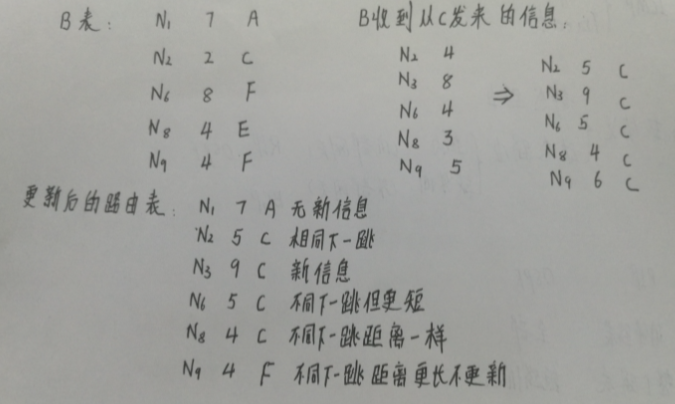 B表: N₁ 7 A
N₂ 2 C
N₆ 8 F
N₈ 4 E
N₉ 4 F
B收到从C发来的信息:
N₂ 4
N₃ 8
N₆ 4
N₈ 3
N₉ 5
⇒
N₂ 5 C
N₃ 9 C
N₆ 5 C
N₈ 4 C
N₉ 6 C
更新后的路由表: N₁ 7 A 无新信息
N₂ 5 C 相同下一跳
N₃ 9 C 新信息
N₆ 5 C 不同下一跳但更短
N₈ 4 C 不同下一跳距离一样
N₉ 4 F 不同下一跳距离更长不更新